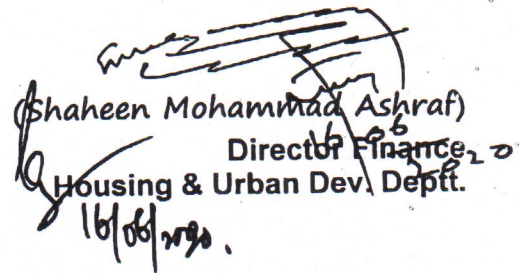 (Shaheen Mohammad Ashraf)
Director Finance
Housing & Urban Dev. Deptt.
16/06/2020.